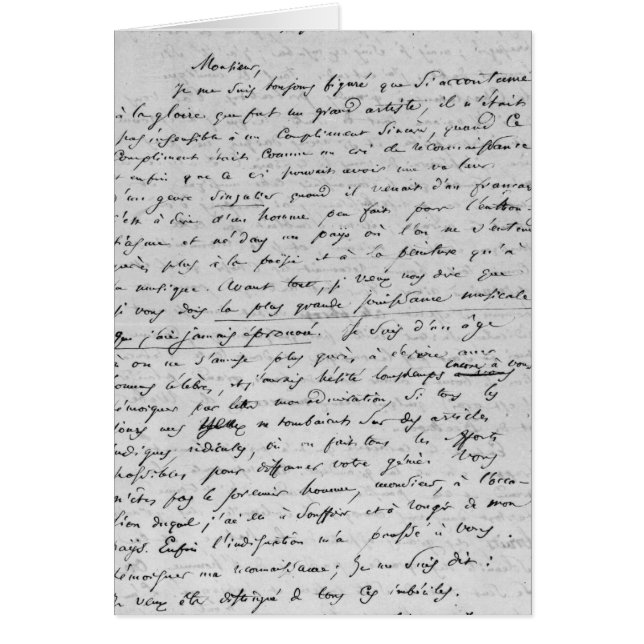 Monsieur,
Je me suis toujours figuré que si accoutumé
à la gloire que fut un grand artiste, il n'était
pas insensible à un compliment sincère, quand ce
compliment était comme un cri de reconnaissance
et enfin que ce cri pouvait avoir une valeur
d'un genre singulier quand il venait d'un français
c'est à dire d'un homme peu fait pour l'enthou-
siasme et né dans un pays où l'on ne s'entend
guères plus à la poësie et à la peinture qu'à
la musique. Avant tout, je veux vous dire que
je vous dois la plus grande jouissance musicale
que j'aie jamais éprouvée. Je suis d'un âge
où on ne s'amuse plus guères à écrire aux
hommes célèbres, et j'aurais hésité longtemps encore à vous
témoigner par lettre mon admiration, si tous les
jours mes yeux ne tombaient sur des articles
indignes, ridicules, où on fait tous les efforts
possibles pour diffamer votre génie. Vous
n'êtes pas le premier homme, monsieur, à l'occa-
sion duquel j'ai eu à souffrir et à rougir de mon
pays. Enfin l'indignation m'a poussé à vous
témoigner ma reconnaissance; je me suis dit:
je veux être distingué de tous ces imbéciles.